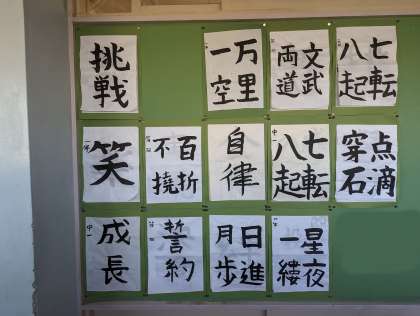 七転
八起
文武
両道
万里
一空
挑戦
点滴
穿石
七転
八起
自律
百折
不撓
笑
星夜
一縷
日進
月歩
誓約
成長
中一